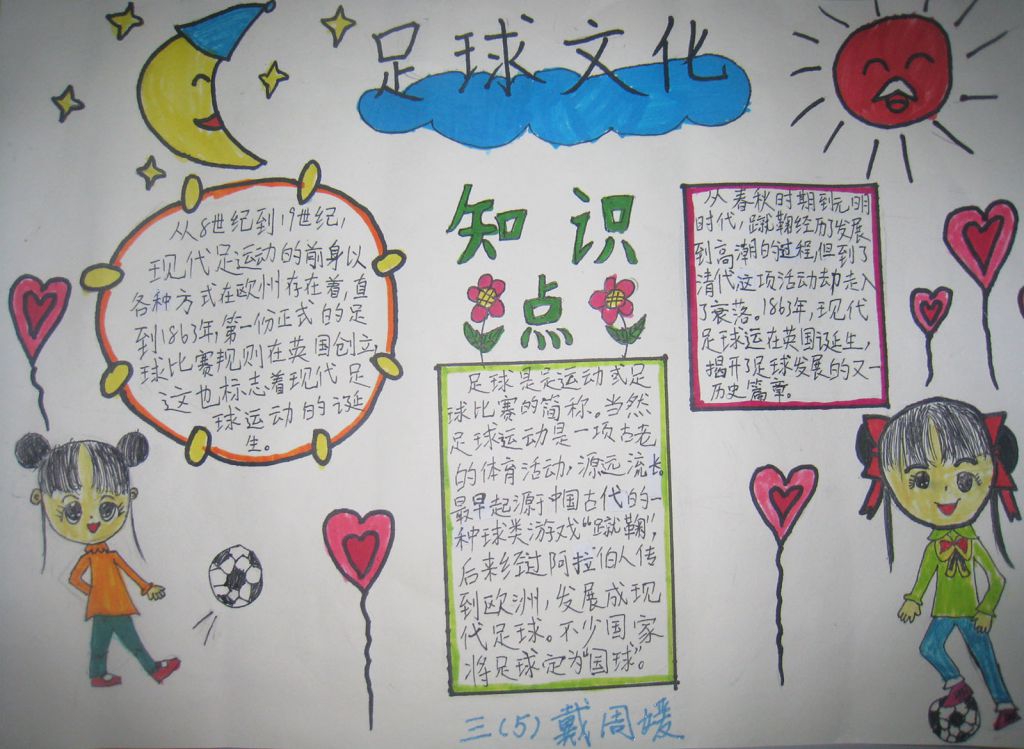 足球文化
知识
点
从8世纪到19世纪,
现代足运动的前身以
各种方式在欧州存在着,直
到1863年,第一份正式的足
球比赛规则在英国创立,
这也标志着现代足
球运动的诞
生。
足球是足运动或足
球比赛的简称。当然
足球运动是一项古老
的体育活动,源远流长。
最早起源于中国古代的一
种球类游戏“蹴鞠”,
后来经过阿拉伯人传
到欧洲,发展成现
代足球。不少国家
将足球定为“国球”。
从春秋时期到元明
时代,蹴鞠经历发展
到高潮的过程,但到了
清代这项活动劫走入
了衰落。1863年,现代
足球运在英国诞生,
揭开了足球发展的又一
历史篇章。
三(5)戴周媛